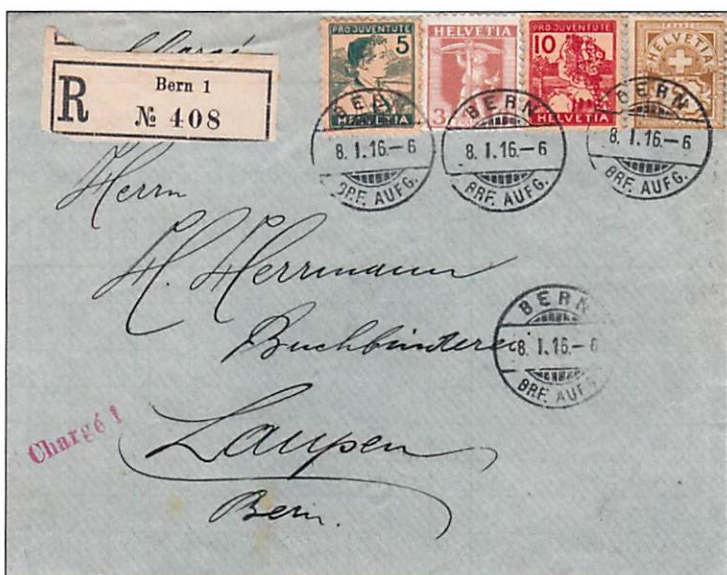 PRO JUVENTUTE
5
HELVETIA
HELVETIA
3
PRO JUVENTUTE
10
HELVETIA
HELVETIA
Chargé
R
Bern 1
№ 408
BERN
8. I. 16.–6
BRF. AUFG.
BERN
8. I. 16.–6
BRF. AUFG.
BERN
8. I. 16.–6
BRF. AUFG.
Herrn
H. Herrmann
Buchbinderei
BERN
8. I. 16.–6
BRF. AUFG.
Chargé 1
Laupen
Bern.